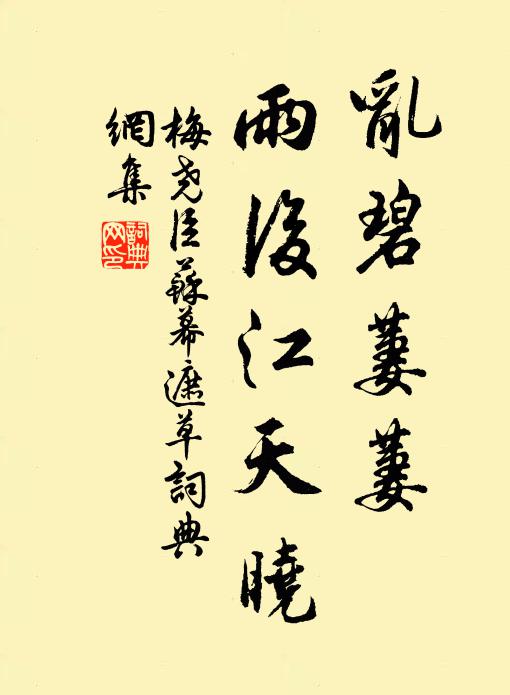 亂碧萋萋
雨後江天曉
梅堯臣蘇幕遮草詞典
網集
詞典
网印